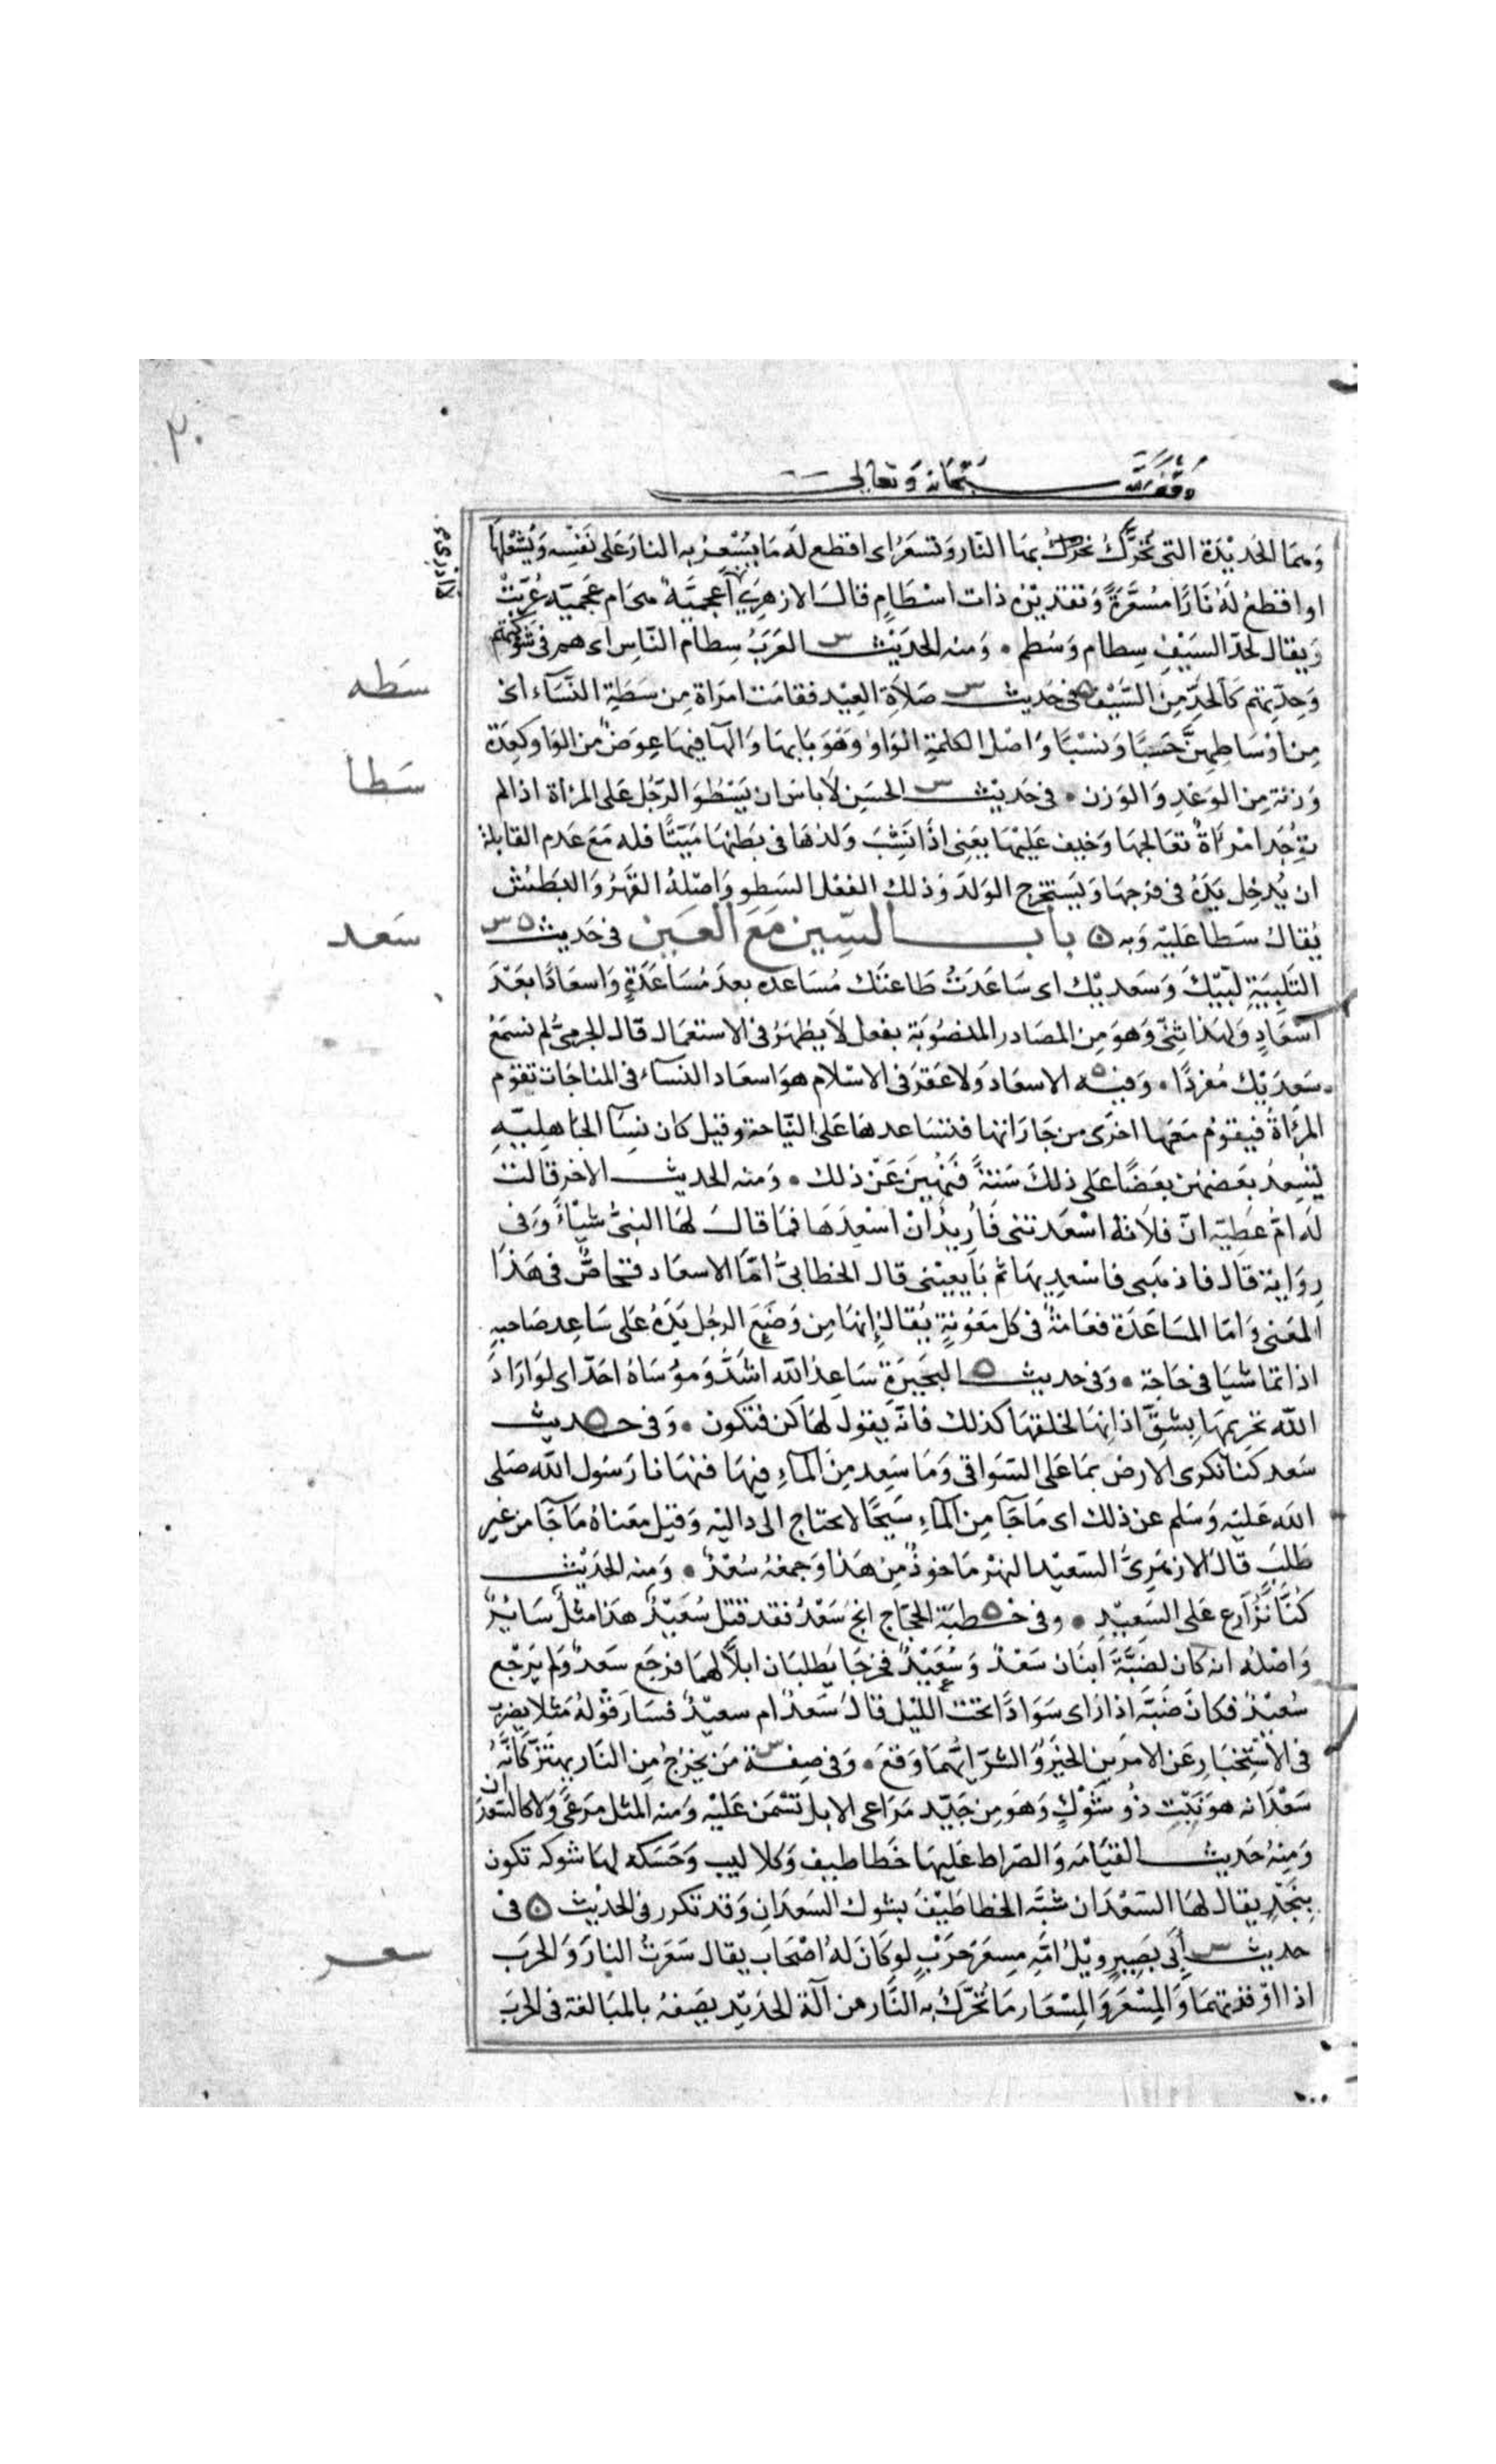 ٢٠
وقف لله سبحانه وتعالى
وهما الحديدة التى تحرك بها النار وتسعر اى اقطع له ما يسعر به النار على نفسه ويشعلها
او اقطع له نارا مسعرة وتقديره ذات اسطام قال الازهرى لا ادرى أعجمية هى ام عجمية عربت
ويقال لحد السيف سطام وسطم ۰ ومنه الحديث س العرب سطام الناس اى هم فى شوكتهم
سطه
وحدتهم كالحد من السيف ه فى حديث س صلاة العيد فقامت امراة من سطة النساء اى
من اوساطهن حسبا ونسبا واصل الكلمة الواو وهو بابها والها فيها عوض من الواو كعدة
سطا
وزنة من الوعد والوزن ۰ فى حديث س الحسن لا باس ان يسطو الرجل على المرأة اذا لم
توجد امرأة تعالجها وخيف عليها يعنى اذا نشب ولدها فى بطنها ميتا فله مع عدم القابلة
ان يدخل يده فى فرجها ويستخرج الولد وذلك الفعل السطو واصله القهر والبطش
سعد
يقال سطا عليه وبه ه باب السين مع العين فى حديث ه س
التلبية لبيك وسعديك اى ساعدت طاعتك مساعده بعد مساعدة واسعادا بعد
اسعاد ولهذا ثنى وهو من المصادر المنصوبة بفعل لا يظهر فى الاستعمال قال الجرمى لم نسمع
سعديك مفردا ۰ وفيه ه الاسعاد ولا عقر فى الاسلام هو اسعاد النساء فى المناحات تقوم
المرأة فيقوم معها اخرى من جاراتها فتساعدها على النياحة وقيل كان نسا الجاهلية
ليسعد بعضهن بعضا على ذلك سنة فنهين عن ذلك ۰ ومنه الحديث الاخر قالت
له ام عطيه ان فلانة اسعدتنى فاريد ان اسعدها فما قال لها النبى شيئا وفى
رواية قال فاذهبى فاسعديها ثم بايعينى قال الخطابى اما الاسعاد فخاص فى هذا
المعنى واما المساعدة فعامة فى كل معونة يقال إنها من وضع الرجل يده على ساعد صاحبه
اذا تماشيا فى حاجة ۰ وفى حديث ه البحيرة ساعد الله اشد وموساه احد اى لو اراد
الله تحريمها بشق اذانها لخلقها كذلك فانه يقول لها كن فتكون ۰ وفى حديث ه
سعد كنا نكرى الارض بما على السواقى وما سعد من الماء فيها فنهانا رسول الله صلى
الله عليه وسلم عن ذلك اى ما جا من الماء سيحا لا يحتاج الى داليه وقيل معناه ما جا من غير
طلب قال الازهرى السعيد النهر ماخوذ من هذا وجمعه سعد ۰ ومنه الحديث
كنا نزارع على السعيد ۰ وفى خطبة ه الحجاج انج سعد فقد قتل سعيد هذا مثل سائر
واصله انه كان لضبة ابنان سعد وسعيد فخرجا يطلبان ابلا لهما فرجع سعد ولم يرجع
سعيد فكان ضبة اذا راى سوادا تحت الليل قال سعد ام سعيد فسار قوله مثلا يضرب
فى الاستخبار عن الامرين الخير والشر ايهما وقع ۰ وفى صفة س من يخرج من النار يهتز كانه
سعدانه هو نبت ذو شوك وهو من جيد مراعى الابل تسمن عليه ومنه المثل مرعى ولا كالسعدان
ومنه حديث القيامه والصراط عليها خطاطيف وكلاليب وحسكه لها شوكه تكون
بنجد يقال لها السعدان شبه الخطاطيف بشوك السعدان وقد تكرر فى الحديث ه فى
سعر
حديث س أبى بصير ويل امه مسعر حرب لو كان له اصحاب يقال سعرت النار والحرب
اذا اوقدتهما والمسعر والمسعار ما تحرك به النار من آلة الحديد يصفه بالمبالغة فى الحرب